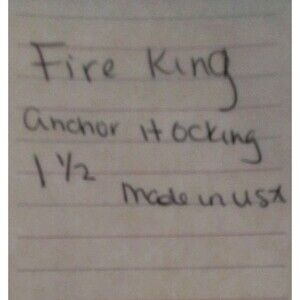 Fire King
anchor Hocking
1 1/2
made in usa